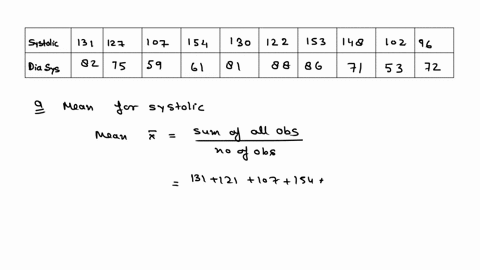 Systolic 131 127 107 154 130 122 153 148 102 96
Dia Sys 82 75 59 61 81 88 86 71 53 72
a Mean for systolic
Mean x̄ = sum of all obs
no of obs
= 131 + 121 + 107 + 154 +